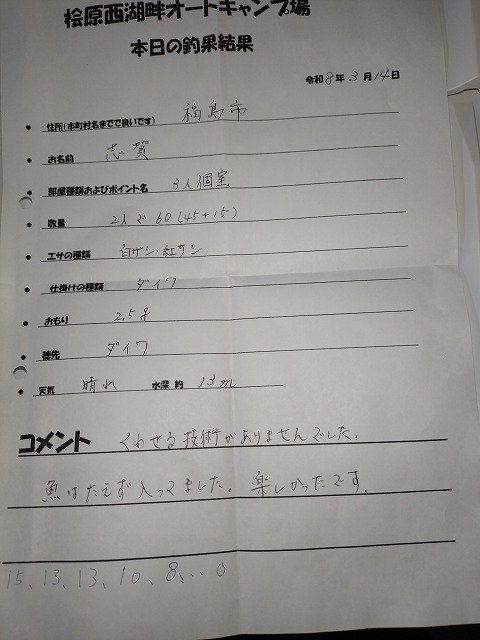 桧原西湖畔オートキャンプ場
本日の釣果結果
令和8年3月14日
住所(市町村名までで良いです) 福島市
お名前 志賀
部屋種類およびポイント名 3人個室
数量 2人で60(45+15)
エサの種類 白サシ・紅サシ
仕掛けの種類 ダイワ
おもり 2.5g
穂先 ダイワ
天気 晴れ 水深 約 13m
コメント くわせる技術がありませんでした。
魚はたえず入ってました。楽しかったです。
15、13、13、10、8、、、0